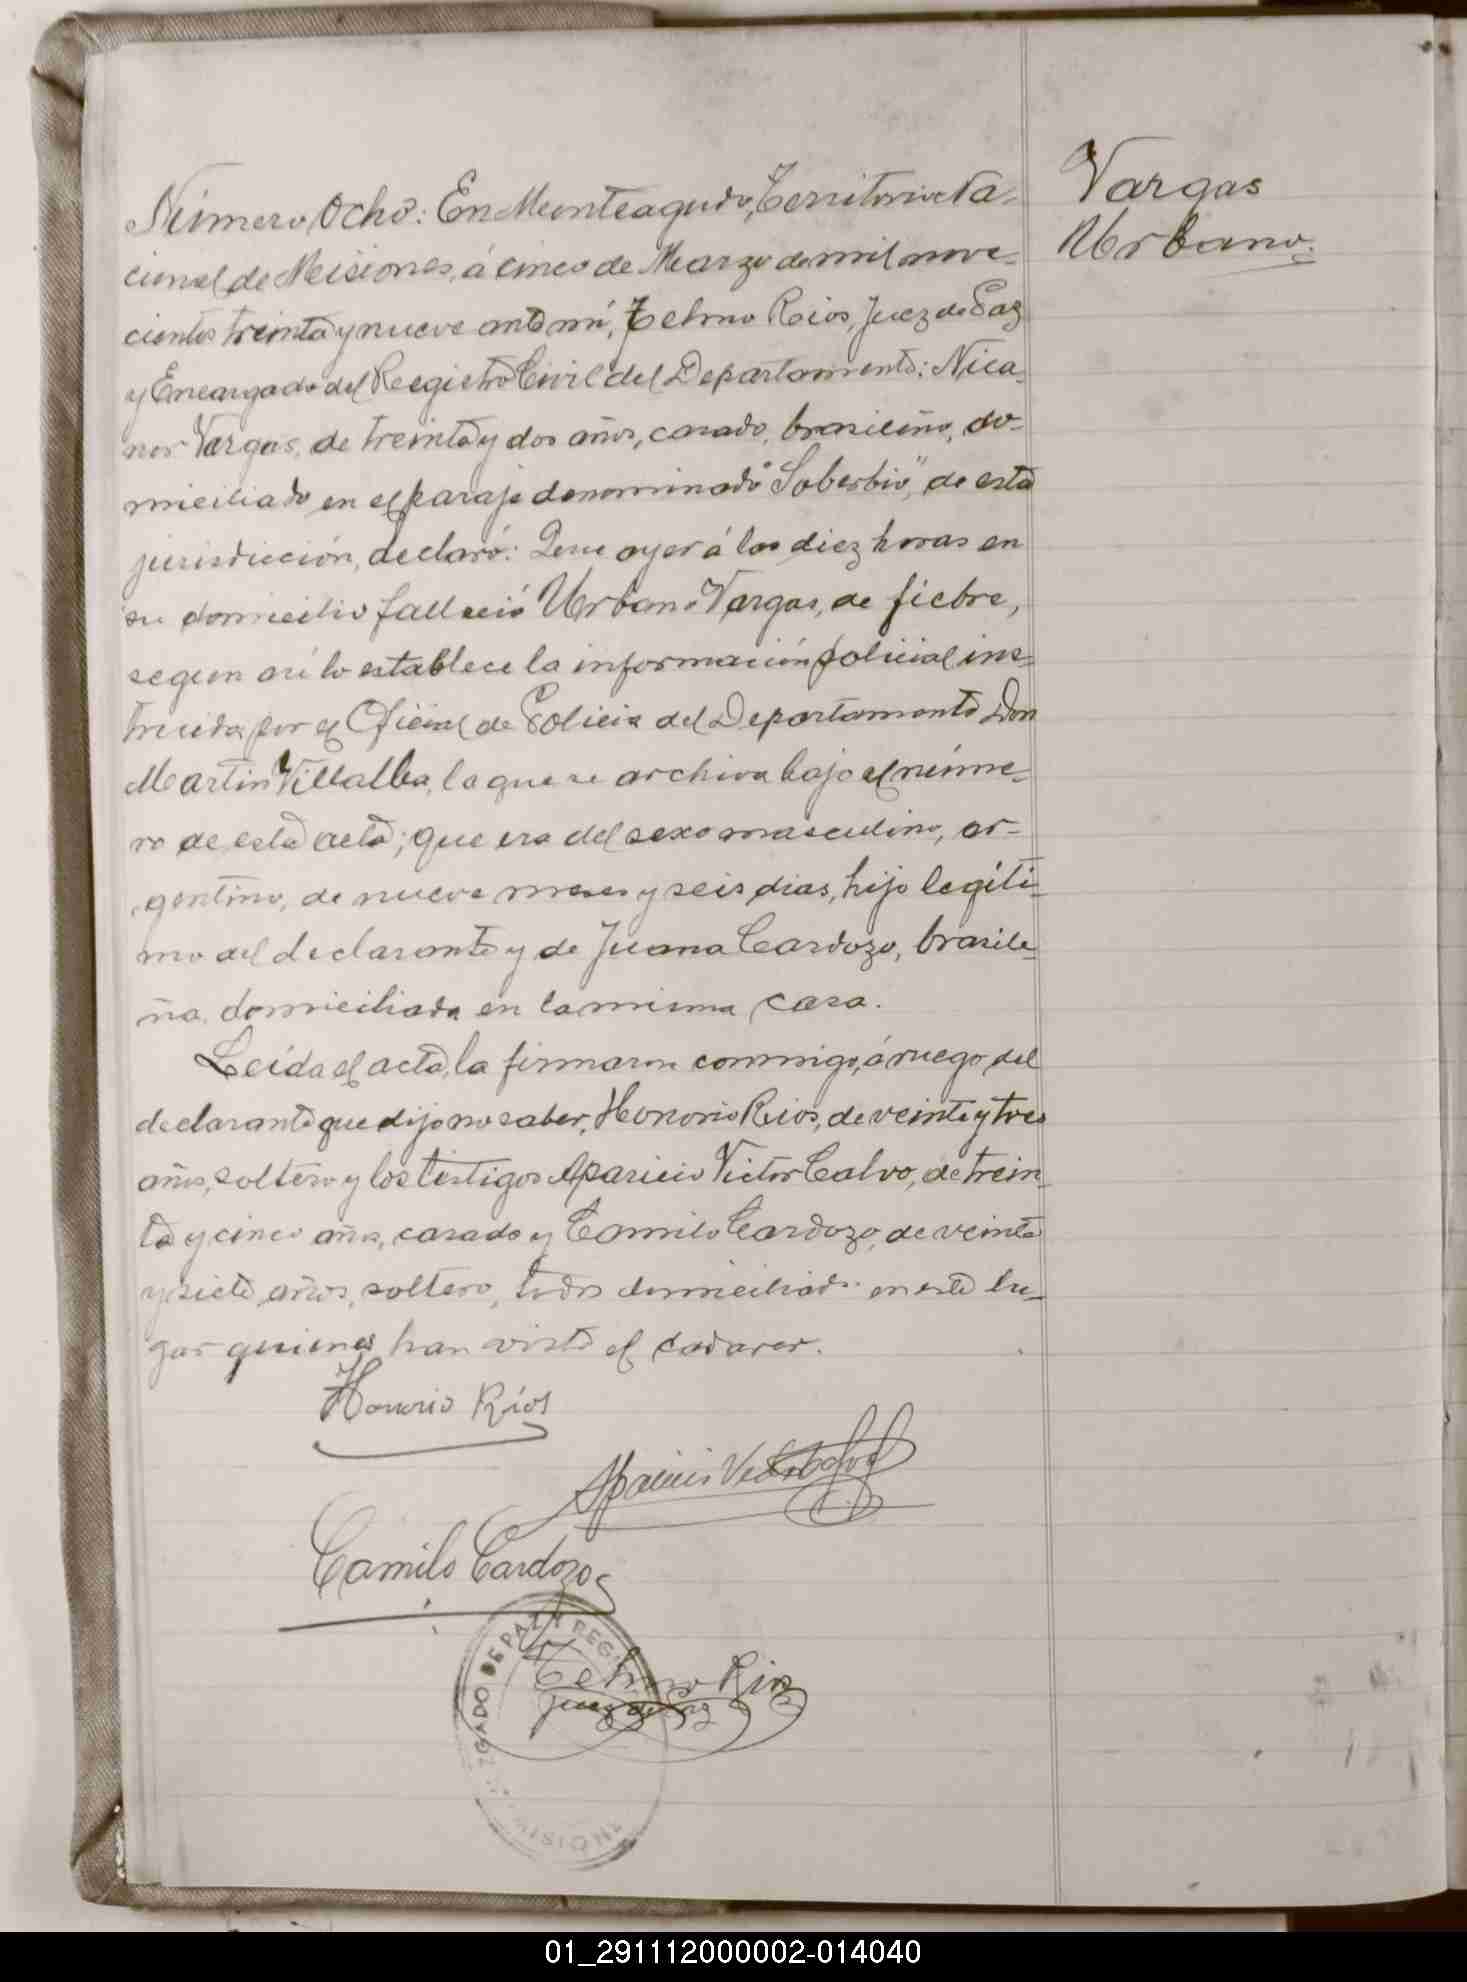 Vargas
Urbano.
Número Ocho: En Monteagudo, Territorio Na-
cional de Misiones, á cinco de Marzo de mil nove-
cientos treinta y nueve ante mí, Telmo Rios, Juez de Paz
y Encargado del Registro Civil del Departamento: Nica-
nor Vargas, de treinta y dos años, casado, brasileño, do-
miciliado en el paraje denominado "Soberbio", de esta
jurisdicción, declaró: Que ayer á las diez horas en
su domicilio falleció Urbano Vargas, de fiebre,
segun así lo establece la información policial ins-
truida por el Oficial de Policia del Departamento Don
Martin Villalba, la que se archiva bajo el núme-
ro de esta acta; que era del sexo masculino, ar-
gentino, de nueve meses y seis dias, hijo legíti-
mo del declarante y de Juana Cardozo, brasile-
ña, domiciliada en la misma casa.
Leída el acta, la firmaron conmigo, á ruego del
declarante que dijo no saber, Honorio Rios, de veinte y tres
años, soltero y los testigos Aparicio Victor Calvo, de trein-
ta y cinco años, casado y Camilo Cardozo, de veinte
y siete años, soltero, todos domiciliados en este lu-
gar quienes han visto el cadaver.
Honorio Ríos
Aparicio Victor Calvo
Camilo Cardozo
Telmo Rios
Juez de Paz
GADO DE PAZ Y REGI
01_291112000002-014040